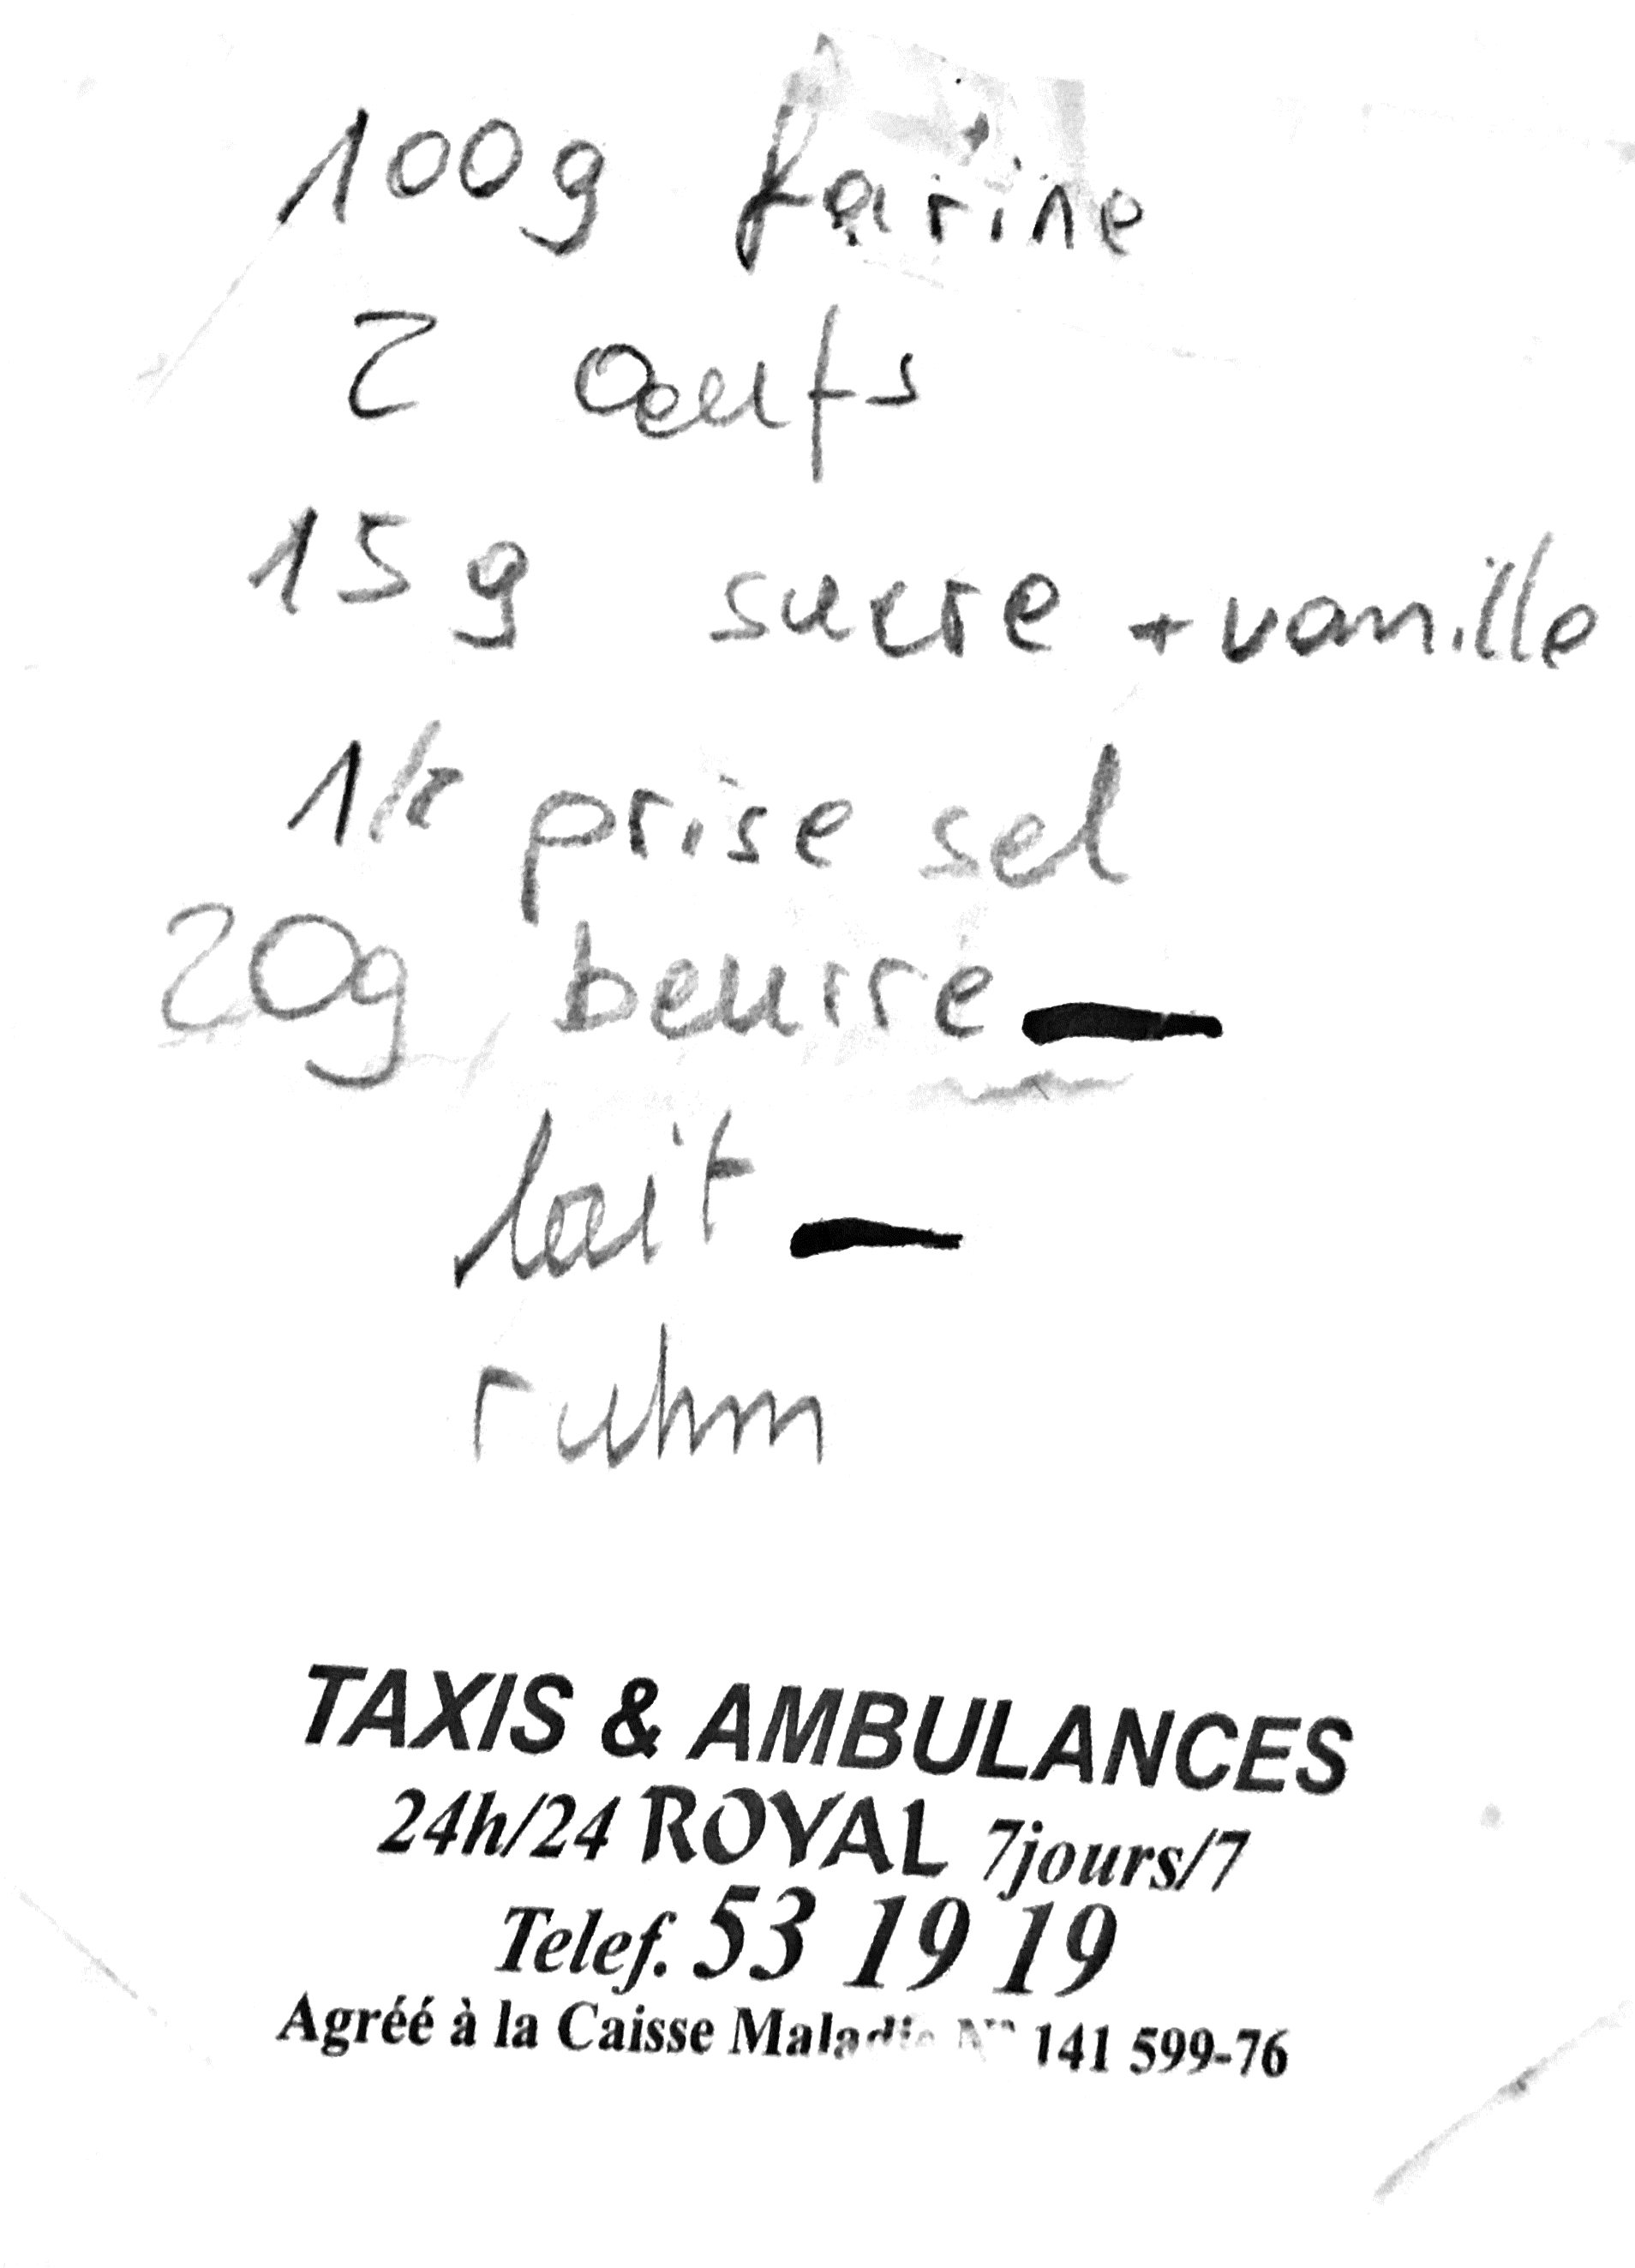 100g farine
2 oeufs
15g sucre + vanille
1/2 prise sel
20g beurre
lait
ruhm
TAXIS & AMBULANCES
24h/24 ROYAL 7jours/7
Telef. 53 19 19
Agréé à la Caisse Maladie N° 141 599-76